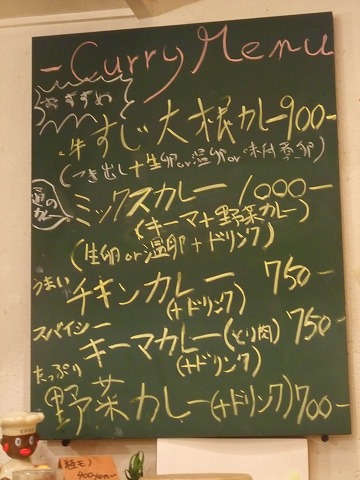 -Curry Menu
おすすめ
牛すじ大根カレー900-
(つき出し+生卵or温卵or味付煮卵)
通のカレー
ミックスカレー1000-
(キーマ+野菜カレー)
(生卵or温卵+ドリンク)
うまい
チキンカレー 750-
(+ドリンク)
スパイシー
キーマカレー(とり肉) 750-
(+ドリンク)
たっぷり
野菜カレー(+ドリンク)700-